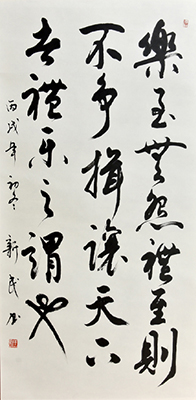 樂至無怨禮至則
不争揖讓天下
者禮乐之謂也
丙戌年初冬新民书